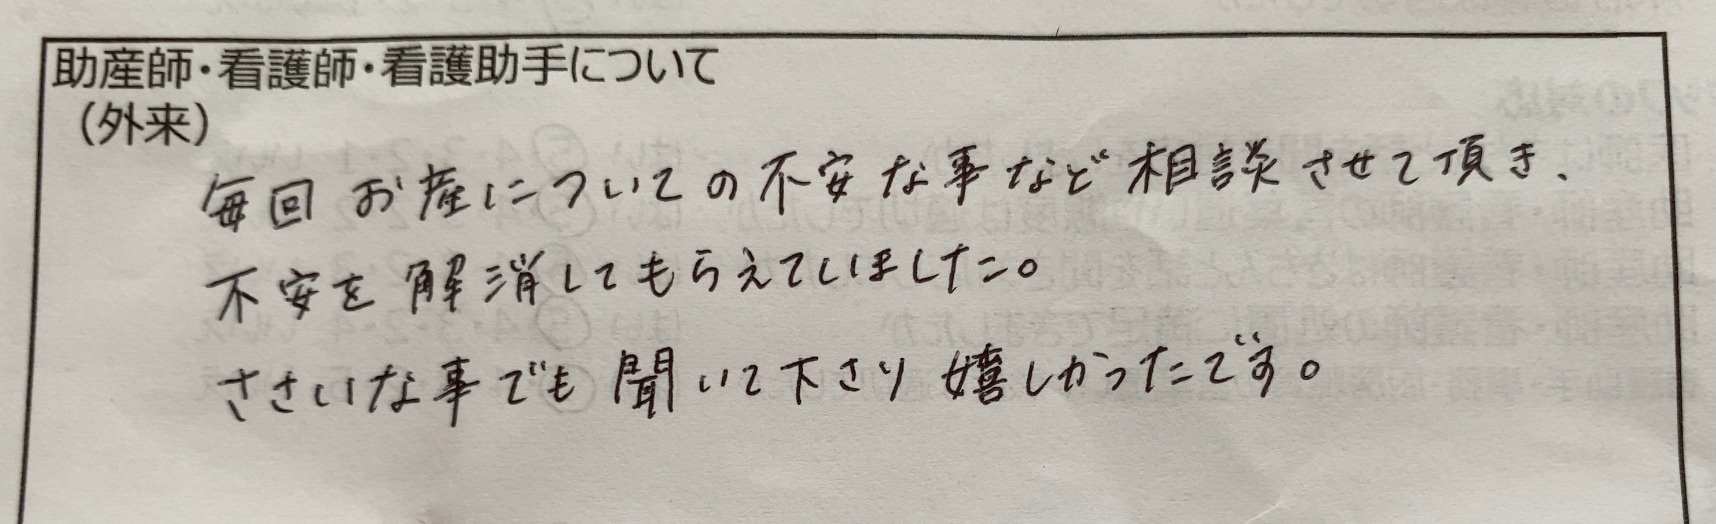 助産師・看護師・看護助手について
（外来）
毎回 お産についての不安な事など相談させて頂き、
不安を解消してもらえていました。
ささいな事でも聞いて下さり嬉しかったです。